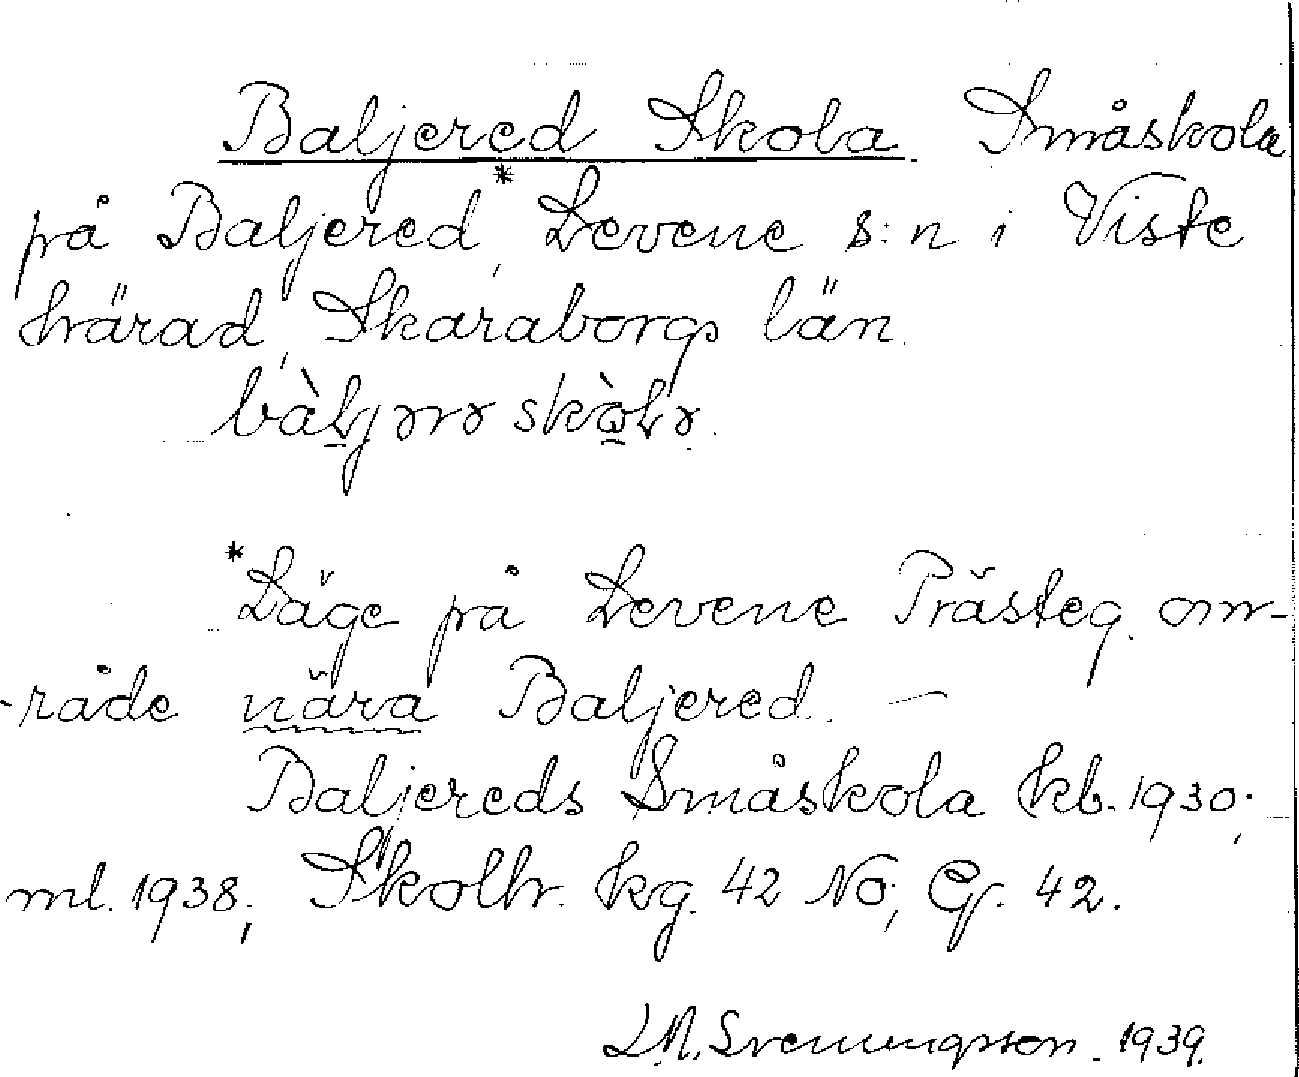 Baljered Skola. Småskola
på Baljered*, Levene s:n i Viste
härad, Skaraborgs län.
bàLjərə skòLa.
*Läge på Levene Prästeg. om-
-råde nära Baljered. —
Baljereds Småskola kb. 1930;
ml. 1938; Skolhr. kg. 42 No; G. 42.
L.M. Svenungsson. 1939.